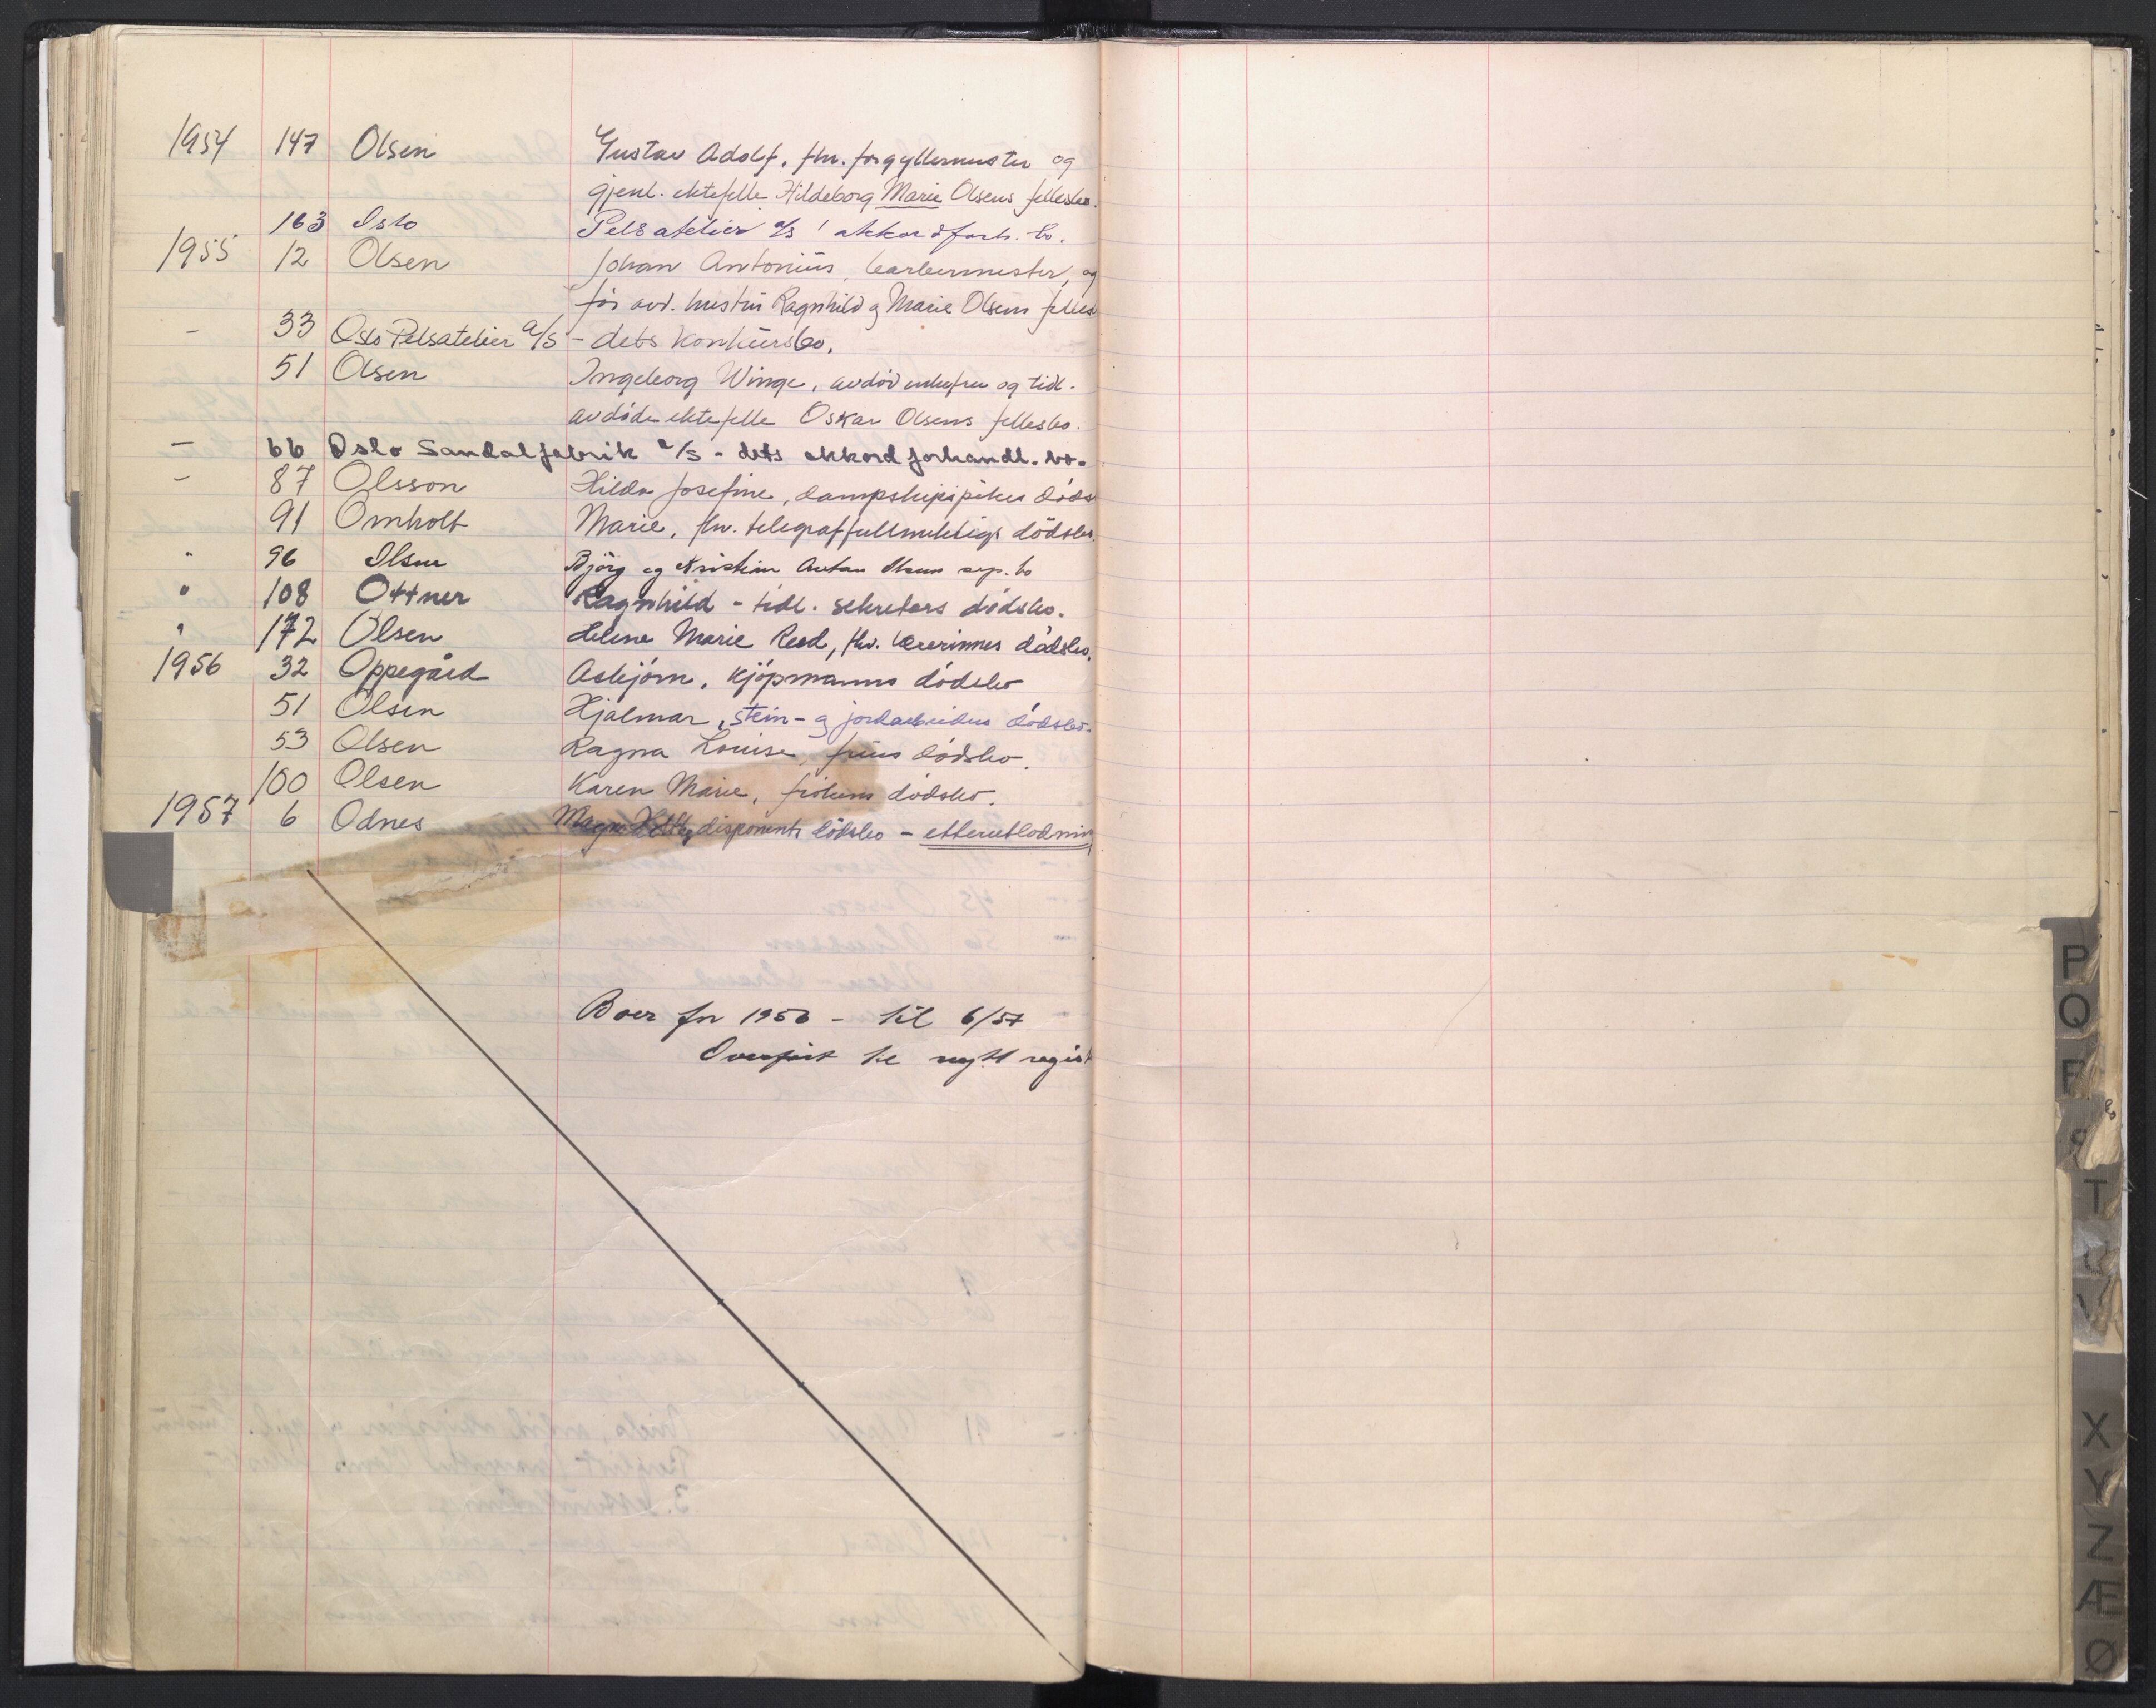 1954 147 Olsen Gustav Adolf, fhv. forgyllermester og
gjenl. ektefelle Hildeborg Marie Olsens fellesbo.
163 Oslo Pelsatelier a/s' akkordforh. bo.
1955 12 Olsen Johan Antonius, barbermester, og
før avd. hustru Ragnhild g Marie Olsens felles
- 33 Oslo Pelsatelier a/s - dets konkursbo.
51 Olsen Ingeborg Winge, avdød enkefru og tidl.
avdøde ektefelle Oskar Olsens fellesbo.
- 66 Oslo Sandalfabrik a/s - dets akkordforhandl. bo.
- 87 Olsson Hilda Josefine, dampskipspikes døds
91 Omholt Marie, fhv. telegraffullmektigs dødsbo.
" 96 Olsen Bjørg og Kristian Anton Olsens sep. bo
" 108 Ottner Ragnhild - tidl. sekretærs dødsbo.
" 172 Olsen Helene Marie Reed, fhv. lærerinnes dødsbo.
1956 32 Oppegård Asbjørn, kjøpmanns dødsbo
51 Olsen Hjalmar, stein- g jordarbeiders dødsbo.
53 Olsen Ragna Louise, frues dødsbo.
100 Olsen Karen Marie, frøkens dødsbo.
1957 6 Odnes Magne disponents dødsbo - etterutlodning
Boer fra 1950 - til 6/57
Overført til nytt regist
P
Q
R
S
T
U
V
X
Y
Z
Æ
Ø